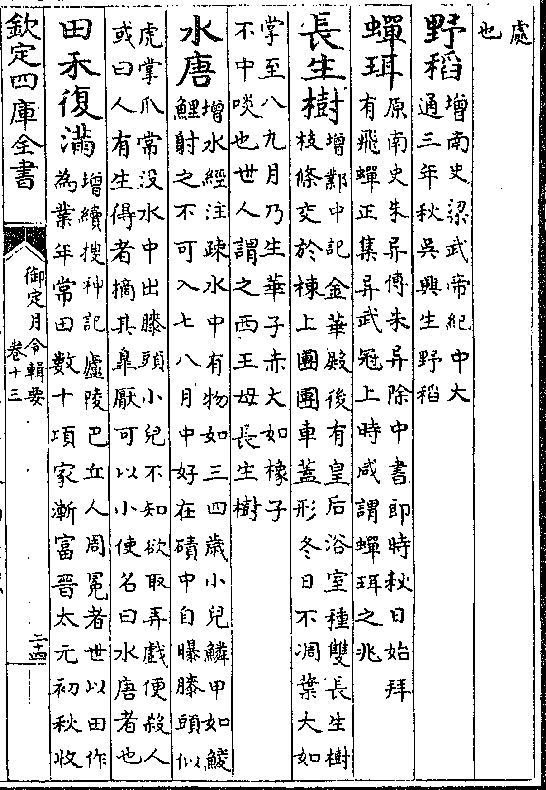 處
也
野稻增南史梁武帝紀中大
通三年秋吳興生野稻
蟬珥原南史朱异傳朱异除中書郎時秋日始拜
有飛蟬正集异武冠上時咸謂蟬珥之兆
長生樹增鄴中記金華殿後有皇后浴室種雙長生樹
枝條交於棟上團團車蓋形冬日不凋葉大如
掌至八九月乃生華子赤大如橡子
不中啖也世人謂之西王母長生樹
水唐增水經注疎水中有物如三四歲小兒鱗甲如鯪
鯉射之不可入七八月中好在磧中自曝膝頭似
虎掌爪常没水中出膝頭小兒不知欲取弄戲便殺人
或曰人有生得者摘其臯厭可以小使名曰水唐者也
田禾復滿增續搜神記廬陵巴丘人周冕者世以田作
為業年常田數十項家漸富晉太元初秋收
欽定四庫全書
御定月令輯要
卷十三
二十四